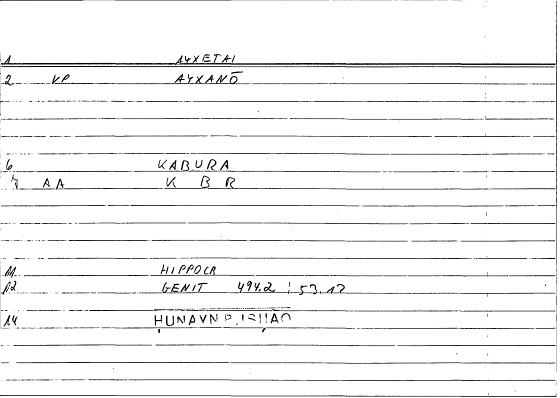 1 AYXETAI
2 VP AYXANŌ
6 KABURA
7 AA K B R
11 HIPPOCR
12 GENIT 494.2 ; 53.17
14 ḤUNAYN B. ISḤĀQ